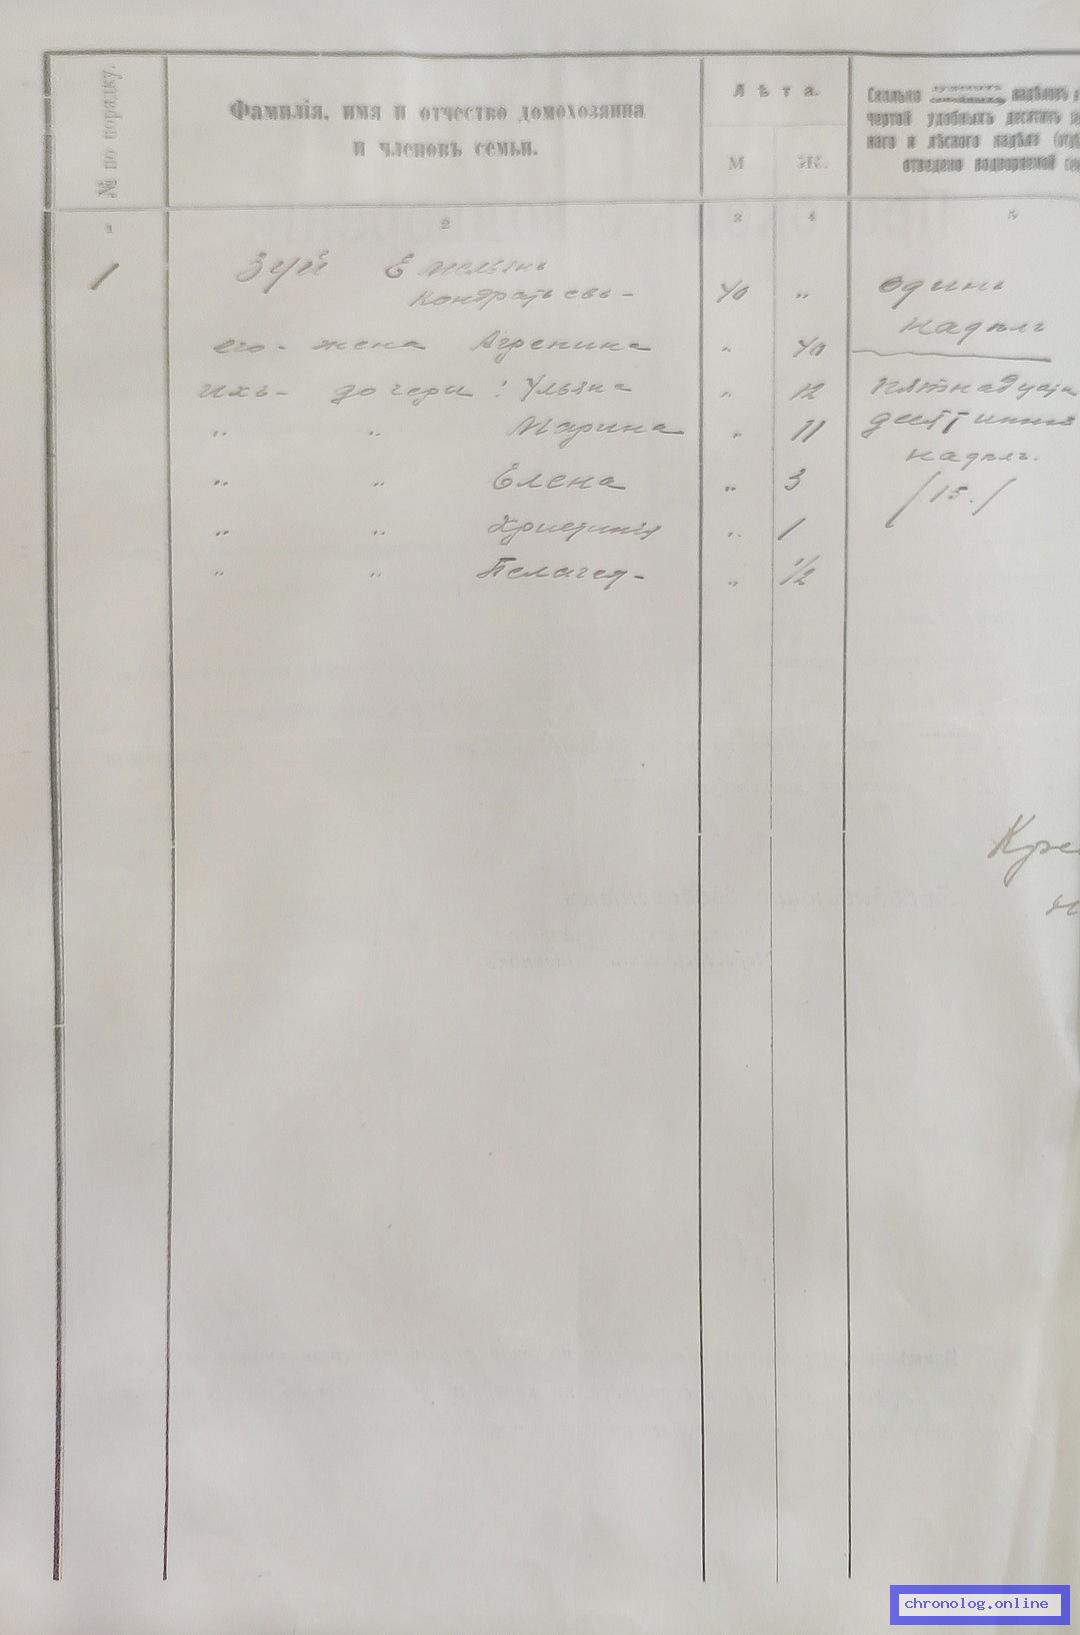 № по порядку.
Фамилія, имя и отчество домохозяина
и членовъ семьи.
Лѣта.
М
Ж.
Сколько надѣловъ
чертой удобныхъ десятинъ
наго и лѣсного надѣла
отведено подворяемой
1 2 3 4 5
1 Зуй Емельянъ
Кондратьевъ - 40 " одинъ
надѣлъ
его - жена Агрепина " 40
ихъ - дочери: Ульяна " 12 пятнадцати
" " Марина " 11 десятинный
надѣлъ.
" " Елена " 3 /15./
" " Христинія " 1
" " Пелагея - " 1/2
chronolog.online